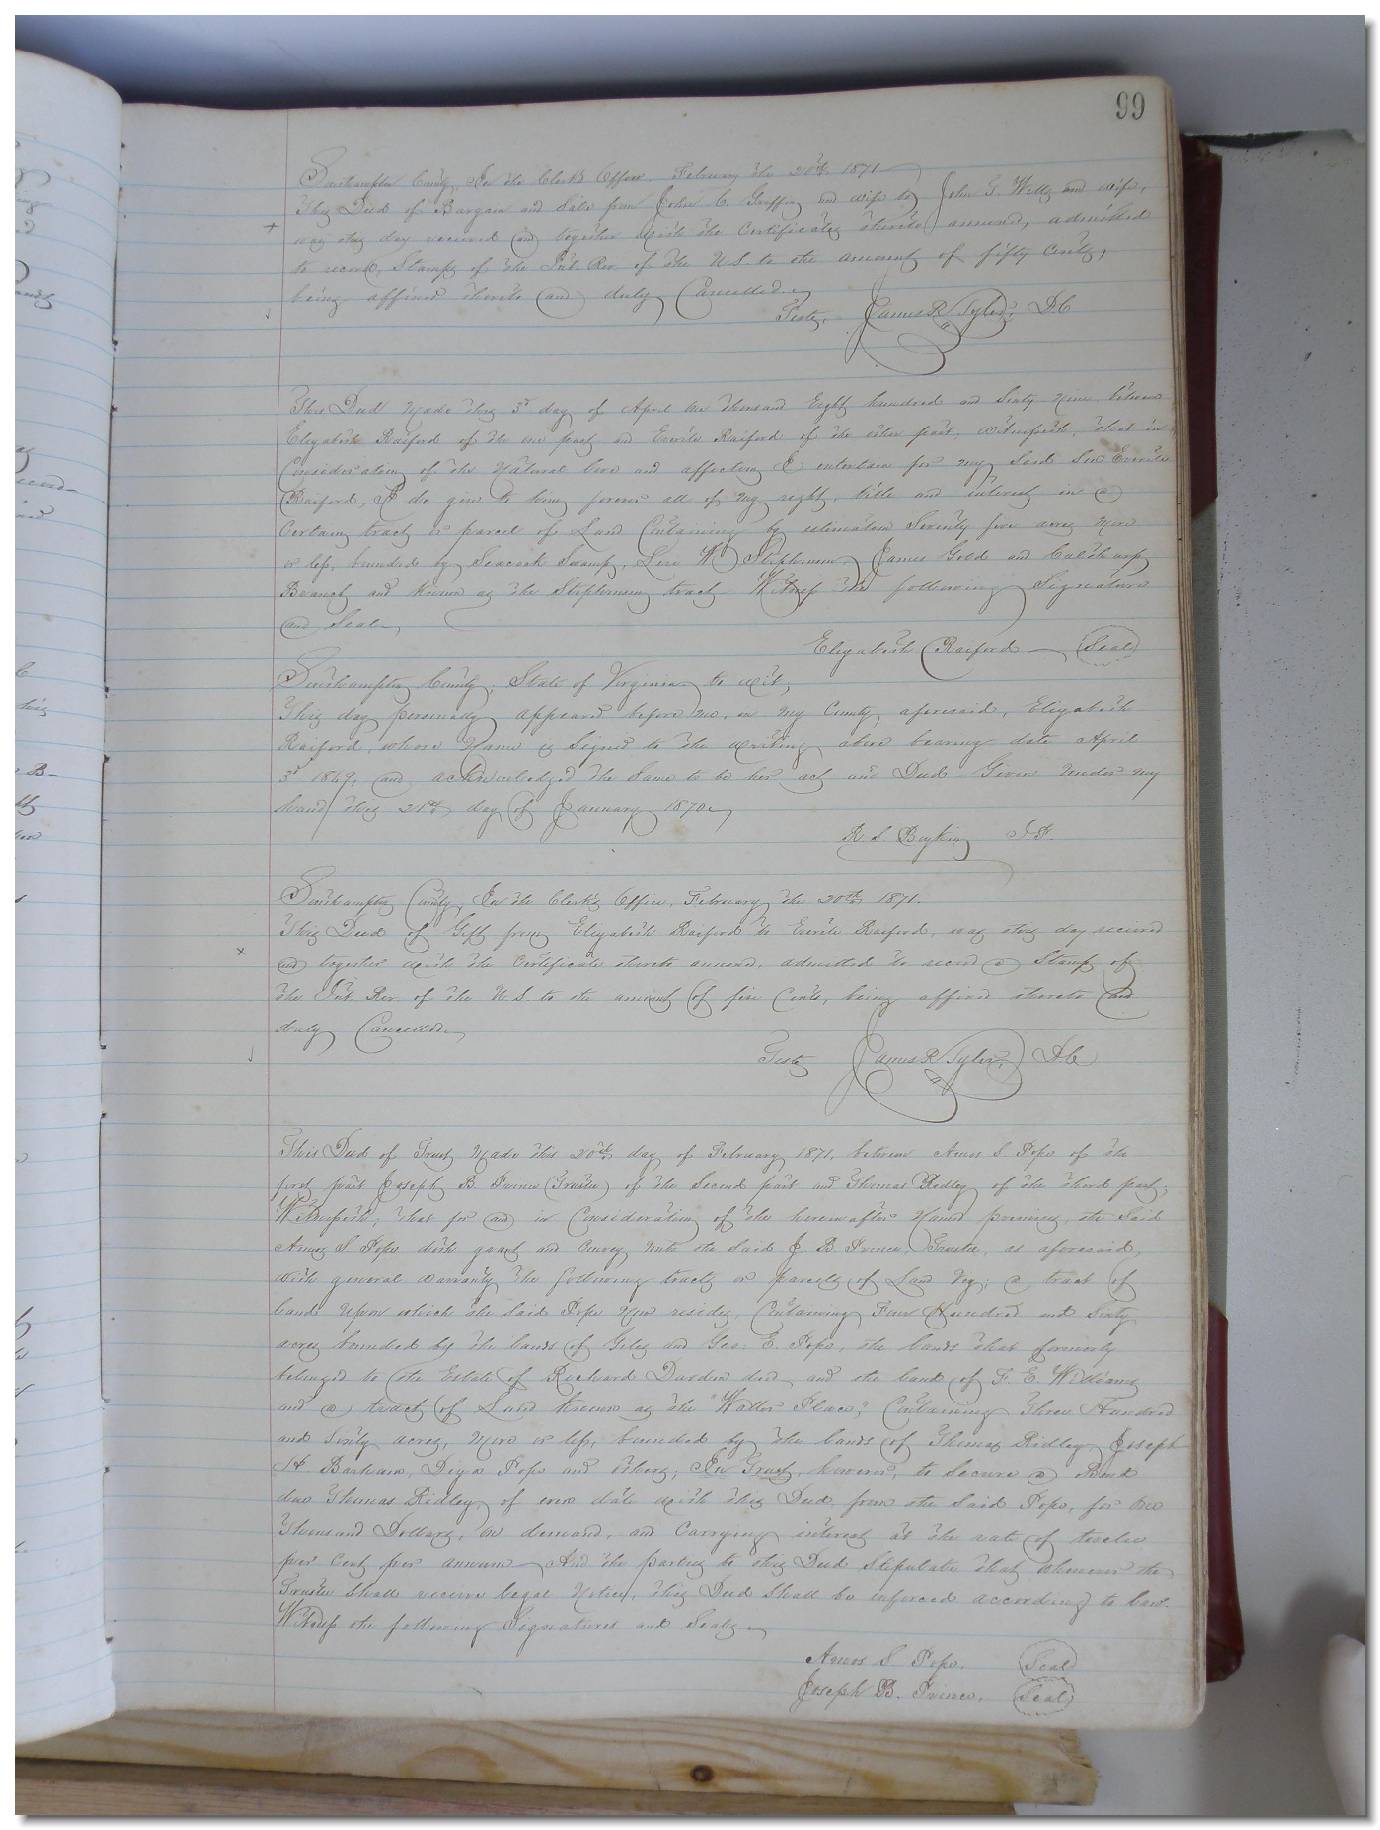 99
Southampton County, In the Clerk's Office February the 20th 1871
This Deed of Bargain and Sale from John C. Griffin and wife to John G. Wills and wife,
was this day received and together with the Certificates thereto annexed, admitted
to record, Stamps of the Int. Rev. of the U.S. to the amount of fifty Cents,
being affixed thereto and duly Cancelled.
Teste, James R Tyler, D.C
This Deed Made this 3d day of April One thousand Eight hundred and Sixty Nine between
Elizabeth Raiford of the one part and Everite Raiford of the other part, witnesseth, that in
Consideration of the Natural love and affection I entertain for my Said Son Everite
Raiford, I do give to him forever all of my right, title and interest in a
Certain tract or parcel of Land Containing by estimation Seventy five acres More
or less, bounded by Seacock Swamp, W Stephenson, James Gold and
Branch and Known as the Stephenson tract Witness the following Signature
and Seal
Elizabeth Raiford Seal
Southampton County, State of Virginia to wit,
This day personally appeared before me, in my County aforesaid, Elizabeth
Raiford, whose Name is Signed to the writing above bearing date April
3d 1869, and acknowledged the Same to be her act and Deed Given under my
hand this 21st day of January 1870
R. S. Boykin J.P.
Southampton County, In the Clerk's Office, February the 20th 1871.
This Deed of Gift from Elizabeth Raiford to Everite Raiford, was this day received
and together with the Certificate thereto annexed, admitted to record a Stamp of
the Int. Rev. of the U.S. to the amount of five Cents, being affixed thereto and
duly Cancelled
Teste James R Tyler, D.C
This Deed of Trust Made this 20th day of February 1871, between Amos S Pope of the
first part Joseph B. Prince (Trustee) of the Second part and Thomas Ridley of the third part;
Witnesseth, that for and in Consideration of the hereinafter Named premises, the Said
Amos S. Pope doth grant and Convey unto the Said J B. Prince, Trustee, as aforesaid,
with general warranty the following tracts or parcels of Land Viz; a tract of
land upon which the Said Pope Now resides, Containing Four Hundred and Sixty
acres bounded by the lands of Giles and Geo. E. Pope, the lands that formerly
belonged to the Estate of Richard Darden decd and the land of F. E. Williams
and a tract of Land Known as the "Waller Place," Containing Three Hundred
and Sixty acres, More or less, bounded by the lands of Thomas Ridley, Joseph
H Barham, Pope and others; In Trust, however, to Secure a Bond
due Thomas Ridley, of even date with this Deed from the Said Pope, for One
Thousand Dollars, on demand, and Carrying interest at the rate of twelve
per Cent per annum And the parties to this Deed Stipulate that Whenever the
Trustee Shall receive legal Notice, this Deed Shall be inforced according to law.
Witness the following Signatures and Seals
Amos S Pope. Seal
Joseph B. Prince. Seal